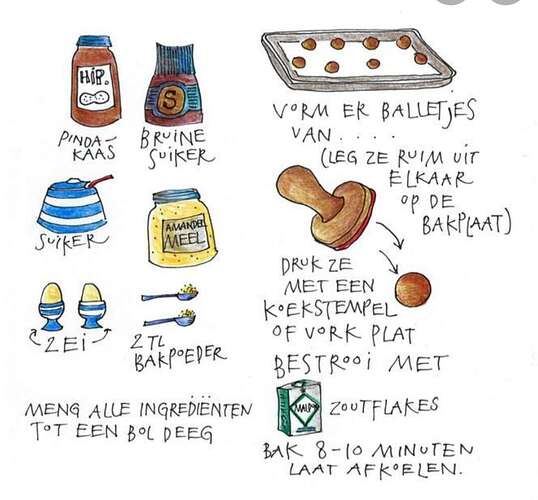 HIP.
S
PINDA-
KAAS
BRUINE
SUIKER
SUIKER
AMANDEL
MEEL
2 EI
2 TL
BAKPOEDER
MENG ALLE INGREDIËNTEN
TOT EEN BOL DEEG
VORM ER BALLETJES
VAN . . . .
(LEG ZE RUIM UIT
ELKAAR
OP DE
BAKPLAAT)
DRUK ZE
MET EEN
KOEKSTEMPEL
OF VORK PLAT
BESTROOI MET
ZOUTFLAKES
BAK 8-10 MINUTEN
LAAT AFKOELEN.